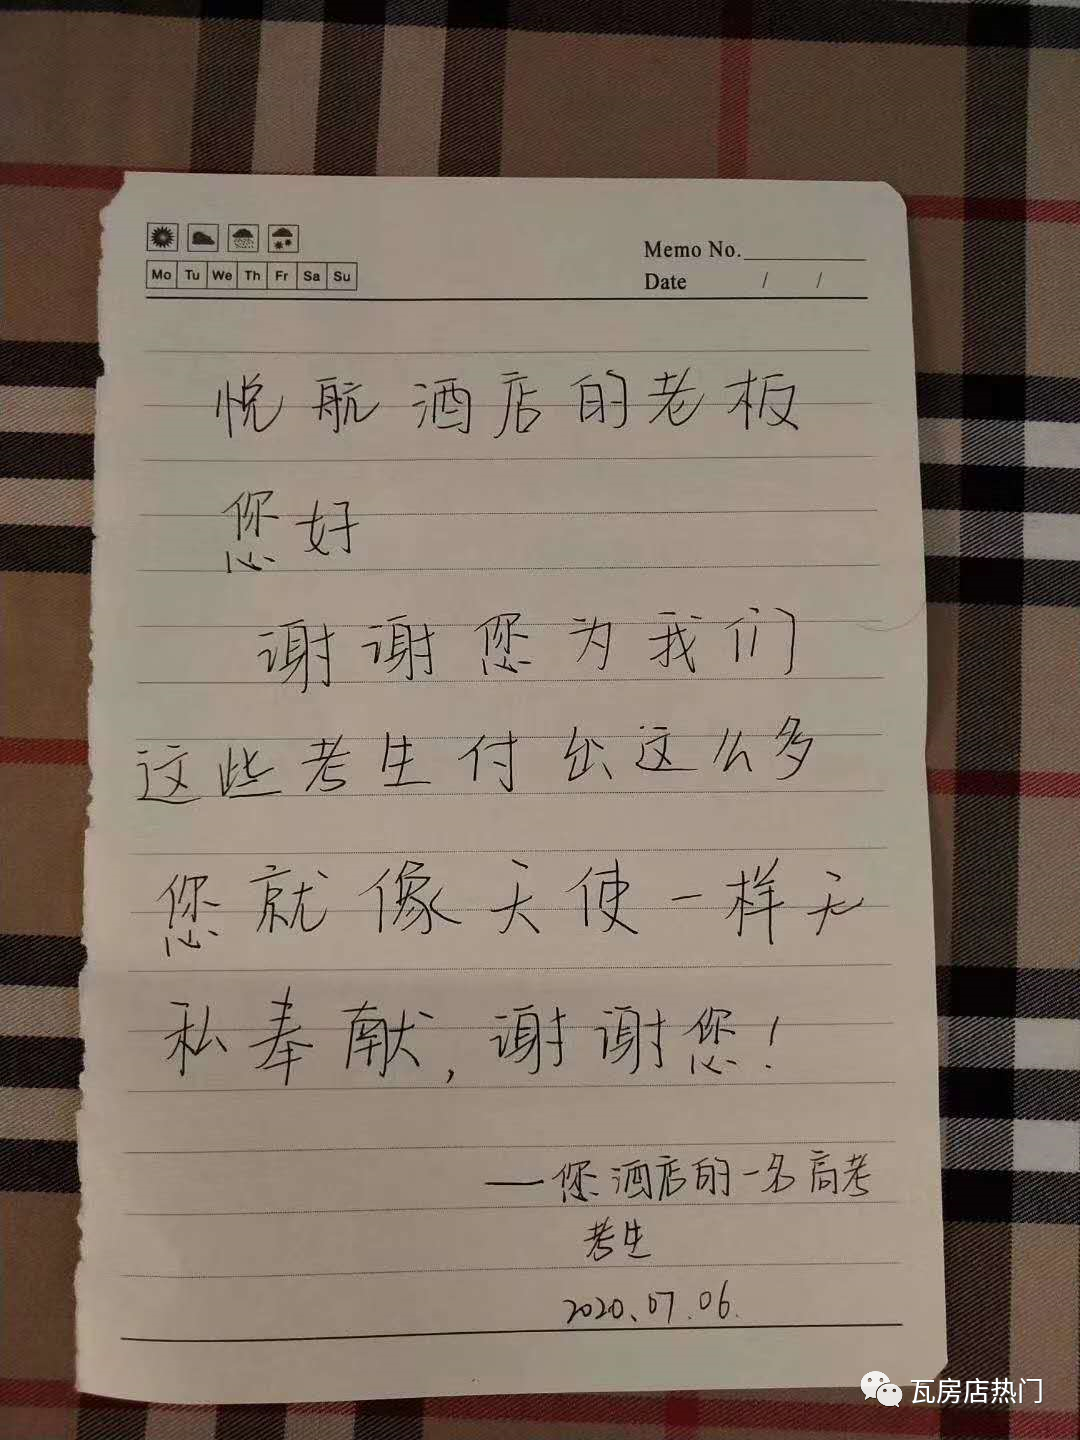 Memo No.
Mo Tu We Th Fr Sa Su
Date / /
悦航酒店的老板
您好
谢谢您为我们
这些考生付出这么多
您就像天使一样无
私奉献,谢谢您!
——您酒店的一名高考
考生
2020.07.06.
瓦房店热门